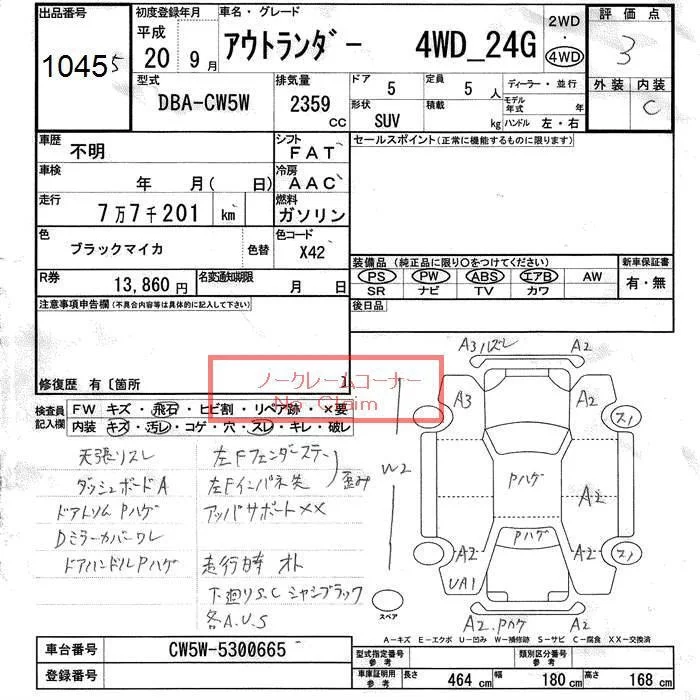 出品番号 初度登録年月 車名・グレード 2WD 評価点
10455 平成 20 9月 アウトランダー 4WD_24G ・ 3
4WD
型式 排気量 ドア 5 定員 5人 ディーラー・並行 外装 内装
DBA-CW5W 2359 cc 形状 SUV 積載 kg モデル年式 年 ハンドル 左・右 C
車歴 不明 シフト FAT セールスポイント(正常に機能するものに限ります)
車検 年 月( 日) 冷房 AAC
走行 7万7千201 km 燃料 ガソリン
色 ブラックマイカ 色替 色コード X42
装備品(純正品に限り〇をつけてください) 新車保証書
PS PW ABS エアB AW 有・無
SR ナビ TV カワ
R券 13,860円 名変通知期限 月 日
注意事項申告欄(不具合内容等は具体的に記入して下さい) 後日品
ノークレームコーナー
No Claim
修復歴 有〔箇所 〕
検査員記入欄 FW キズ・飛石・ヒビ割・リペア跡・×要
内装 キズ・汚レ・コゲ・穴・スレ・キレ・破レ
天張リスレ 左Fフェンダーステー
ダッシュボードA 左Fインパネ先 歪み
ドアトリムPハゲ アッパサポート××
Dミラーカバーワレ
ドアハンドルPハゲ 走行時 オト
下廻りS.C シャシブラック
各A.U.S
A3ハズレ A2
A3 A2 スノ
W2 Pハゲ A2
Pハゲ
A2 A2 スノ
UA1
A2.Pハゲ A2
スペア
A-キズ E-エクボ U-凹み W-補修跡 S-サビ C-腐食 XX-交換済
車台番号 CW5W-5300665 型式指定番号 参考 類別区分番号 参考
登録番号 車庫証明用 参考 長さ 464 cm 幅 180 cm 高さ 168 cm